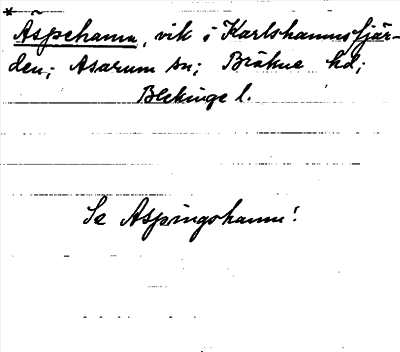 * Aspehamn, vik i Karlshamnsfjär-
den; Asarum sn; Bräkne hd;
Blekinge l.
Se Aspingshamn!